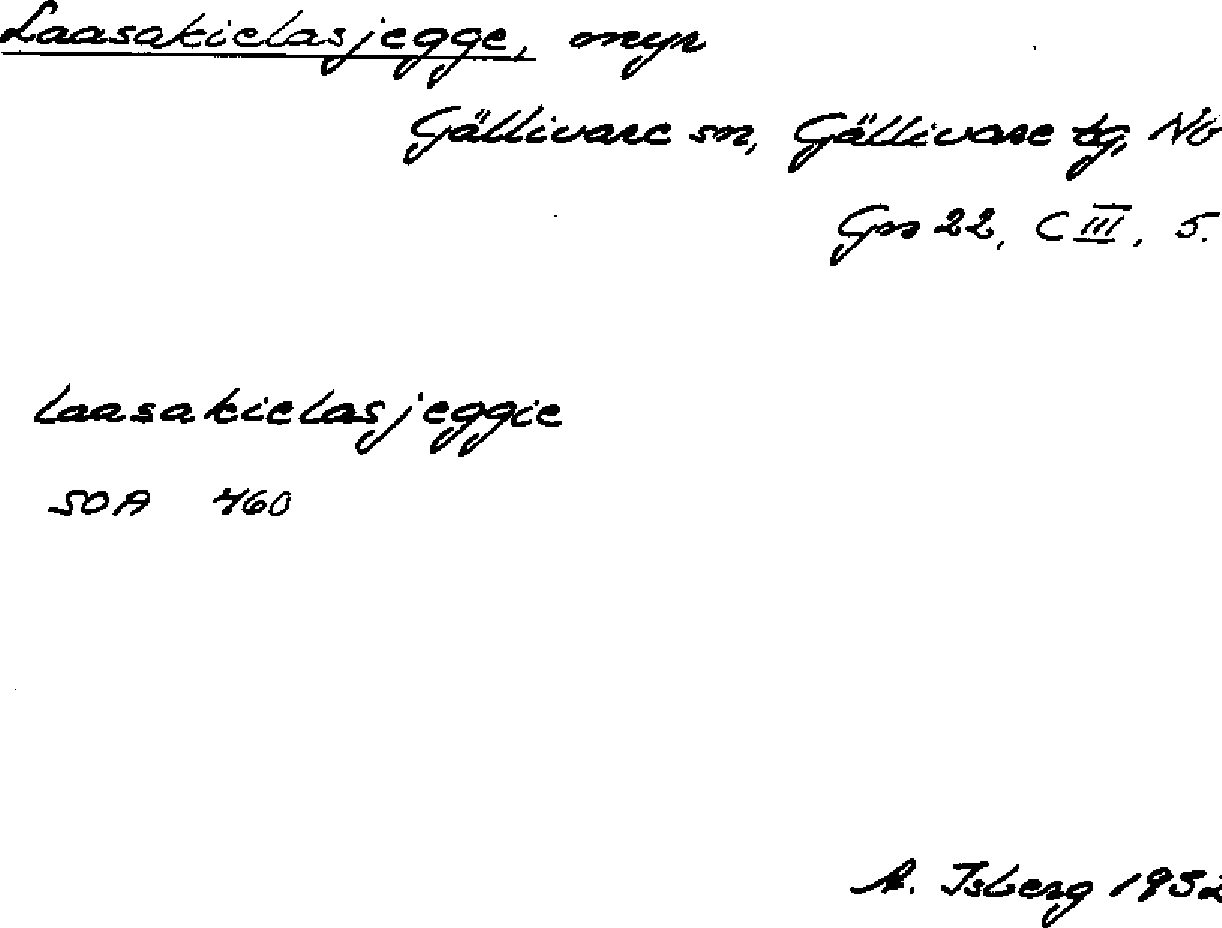 Laasakielasjegge, myr
Gällivare sn, Gällivare tg, Nb
Gps 22, C III, 5.
laasakielasjeggie
SOA 460
A. Isberg 1952